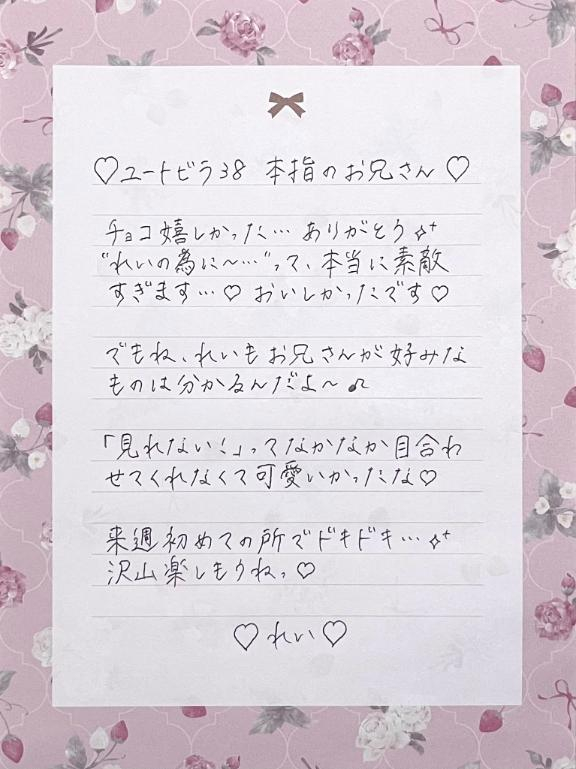 ♡ユートピラ38 本指のお兄さん♡
チョコ嬉しかった… ありがとう
“れいの為に〜…”って、本当に素敵
すぎます…♡ おいしかったです♡
でもね、れいもお兄さんが好みな
ものは分かるんだよ〜♫
「見れない!」ってなかなか目合わ
せてくれなくて可愛いかったな♡
来週初めての所でドキドキ…
沢山楽しもうねっ♡
♡れい♡